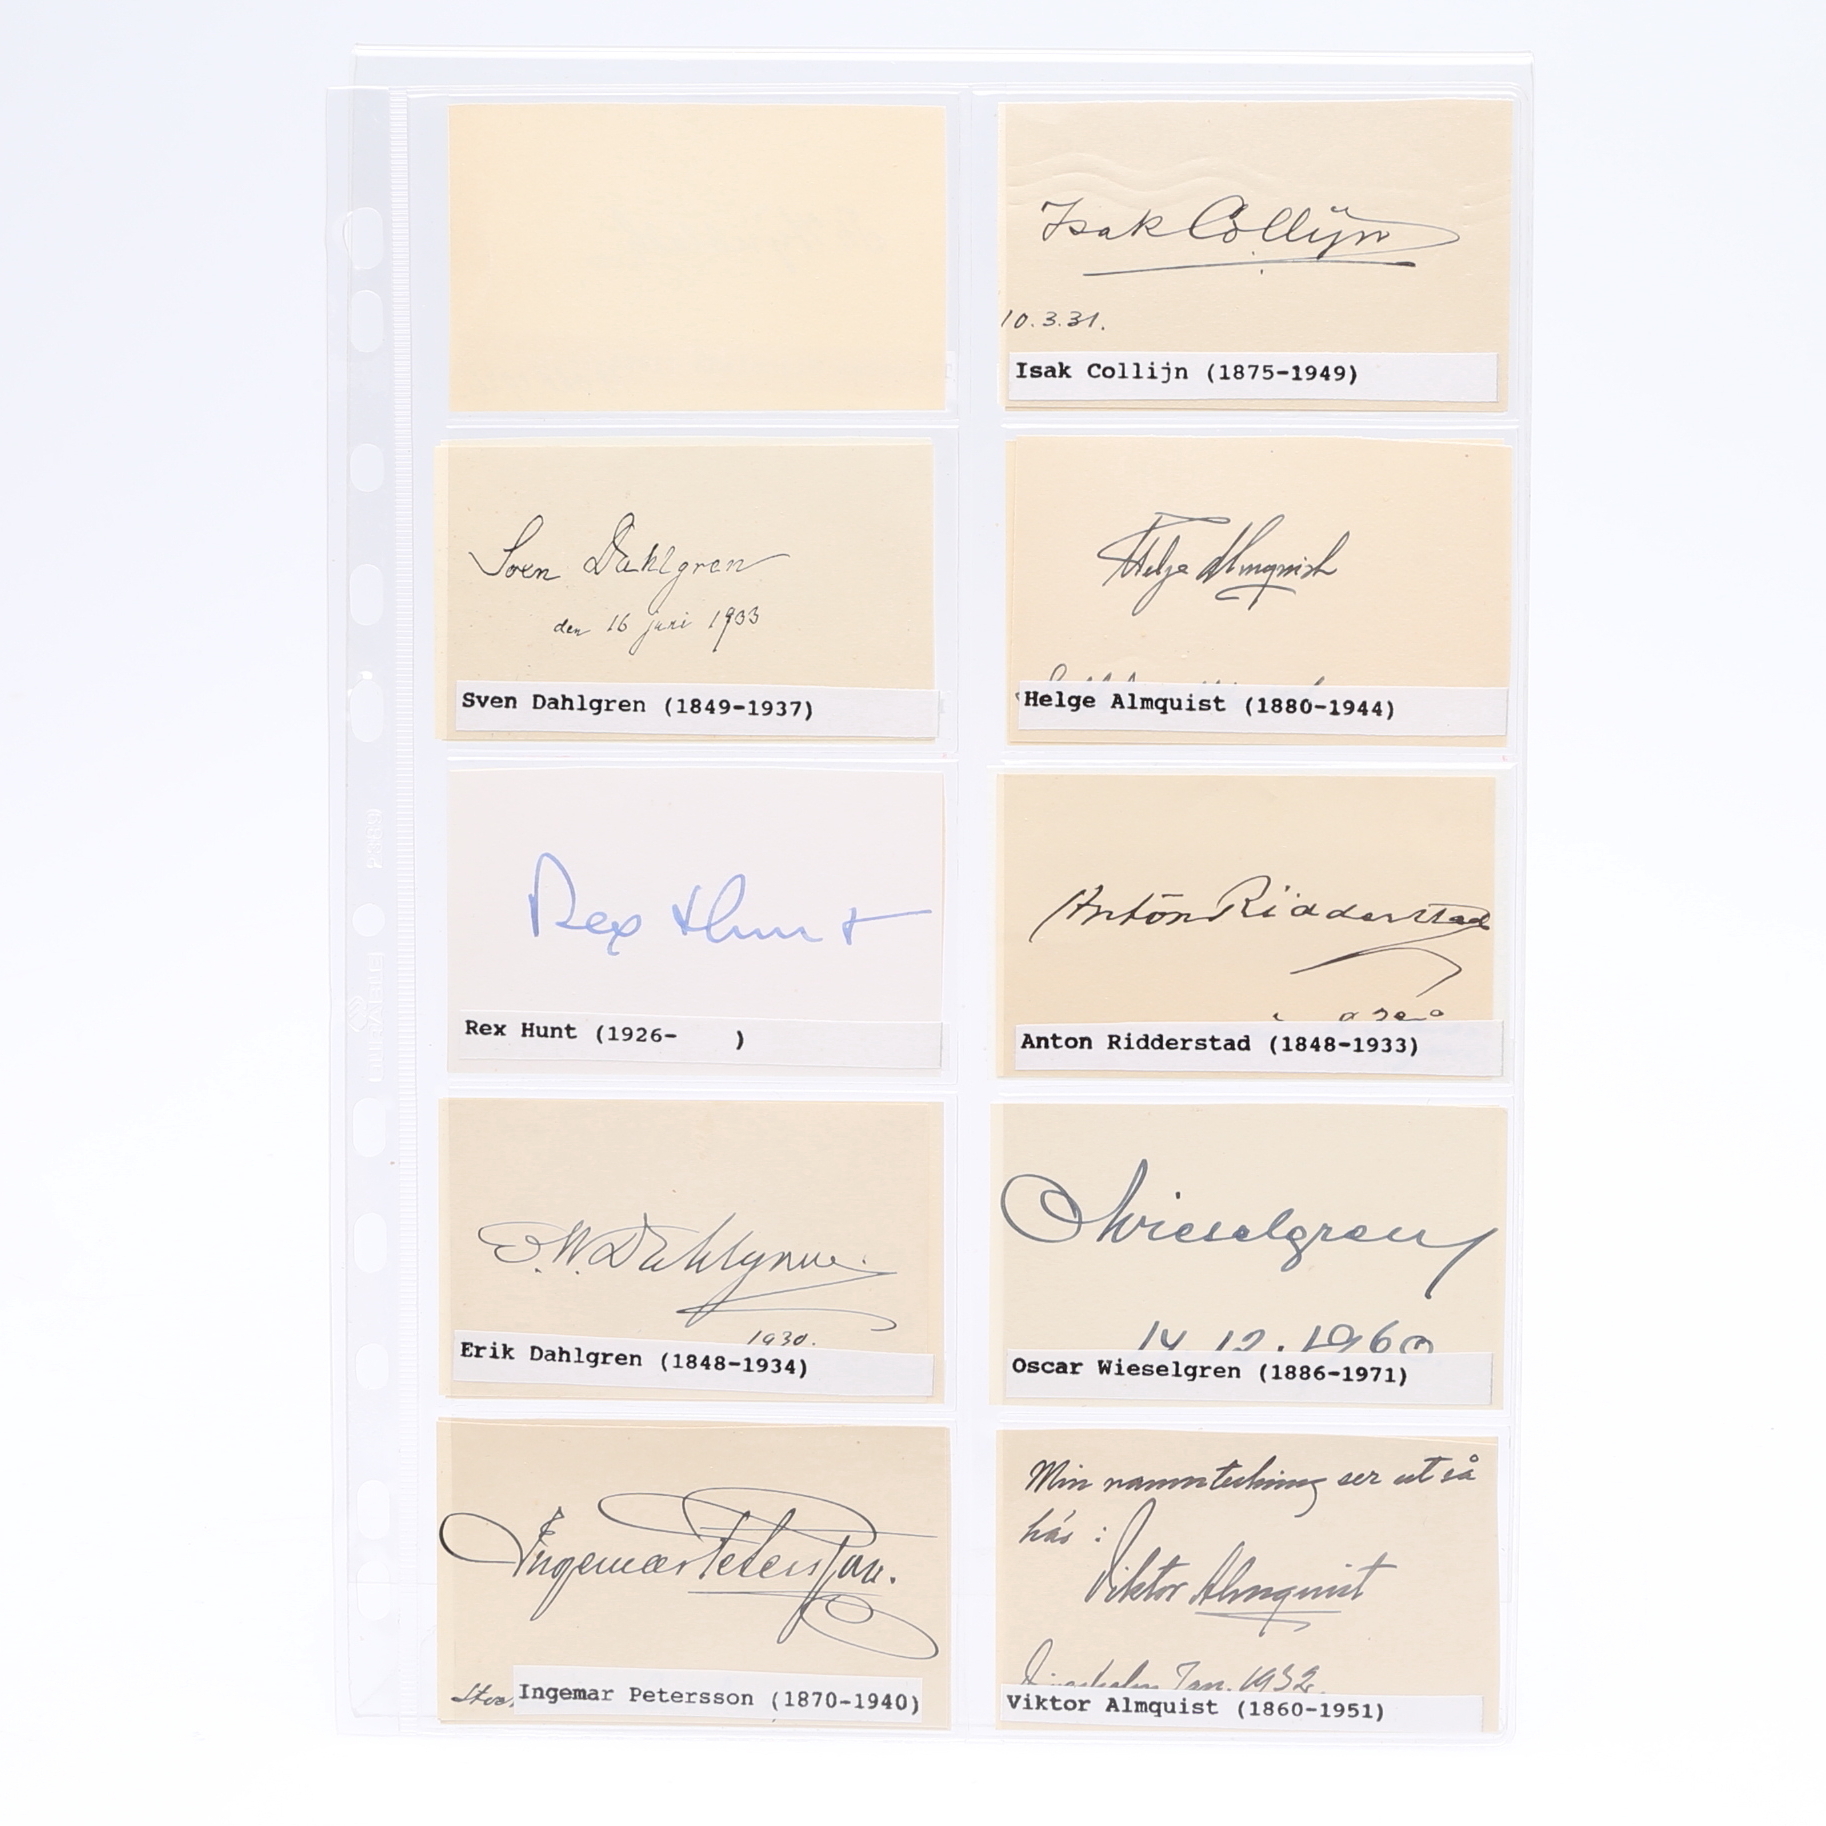 Isak Collijn
10.3.31.
Isak Collijn (1875-1949)
Sven Dahlgren
den 16 juni 1933
Sven Dahlgren (1849-1937)
Helge Almquist
Helge Almquist (1880-1944)
Rex Hunt
Rex Hunt (1926-    )
Anton Ridderstad
Anton Ridderstad (1848-1933)
E.W. Dahlgren.
1930.
Erik Dahlgren (1848-1934)
OWieselgren
14 12. 1960
Oscar Wieselgren (1886-1971)
Ingemar Petersson.
Ingemar Petersson (1870-1940)
Min namnteckning ser ut så
här:
Viktor Almquist
Jan. 1932.
Viktor Almquist (1860-1951)